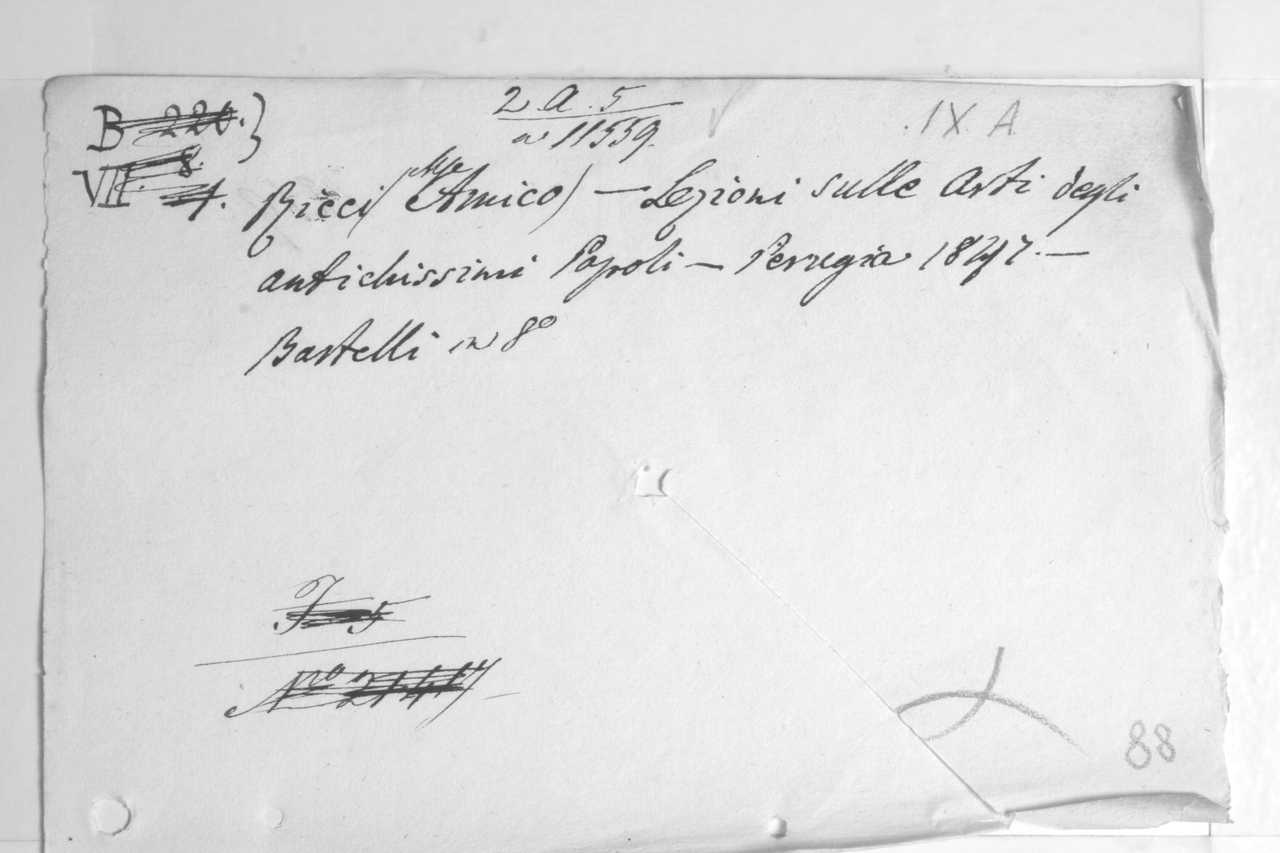 2. A. 5
n° 11559.
IX. A
B 220.}
VII. 8.
4.
Ricci (Mse Amico) — Lezioni sulle Arti degli
antichissimi Popoli — Perugia 1847. —
Bartelli in 8°
J 5
N.ro
88